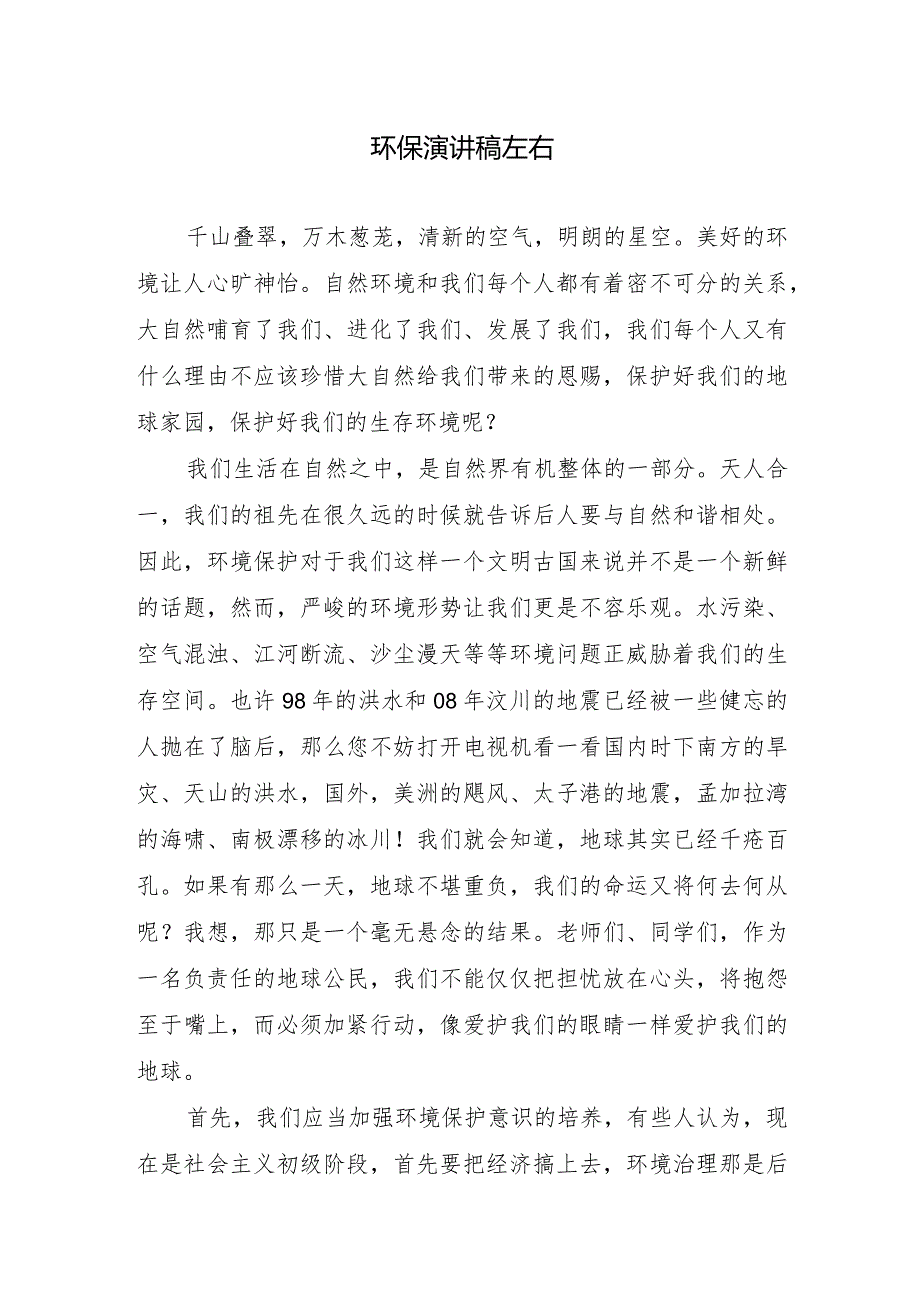 环保演讲稿左右
千山叠翠，万木葱茏，清新的空气，明朗的星空。美好的环
境让人心旷神怡。自然环境和我们每个人都有着密不可分的关系，
大自然哺育了我们、进化了我们、发展了我们，我们每个人又有
什么理由不应该珍惜大自然给我们带来的恩赐，保护好我们的地
球家园，保护好我们的生存环境呢？
我们生活在自然之中，是自然界有机整体的一部分。天人合
一，我们的祖先在很久远的时候就告诉后人要与自然和谐相处。
因此，环境保护对于我们这样一个文明古国来说并不是一个新鲜
的话题，然而，严峻的环境形势让我们更是不容乐观。水污染、
空气混浊、江河断流、沙尘漫天等等环境问题正威胁着我们的生
存空间。也许98年的洪水和08年汶川的地震已经被一些健忘的
人抛在了脑后，那么您不妨打开电视机看一看国内时下南方的旱
灾、天山的洪水，国外，美洲的飓风、太子港的地震，孟加拉湾
的海啸、南极漂移的冰川！我们就会知道，地球其实已经千疮百
孔。如果有那么一天，地球不堪重负，我们的命运又将何去何从
呢？我想，那只是一个毫无悬念的结果。老师们、同学们，作为
一名负责任的地球公民，我们不能仅仅把担忧放在心头，将抱怨
至于嘴上，而必须加紧行动，像爱护我们的眼睛一样爱护我们的
地球。
首先，我们应当加强环境保护意识的培养，有些人认为，现
在是社会主义初级阶段，首先要把经济搞上去，环境治理那是后